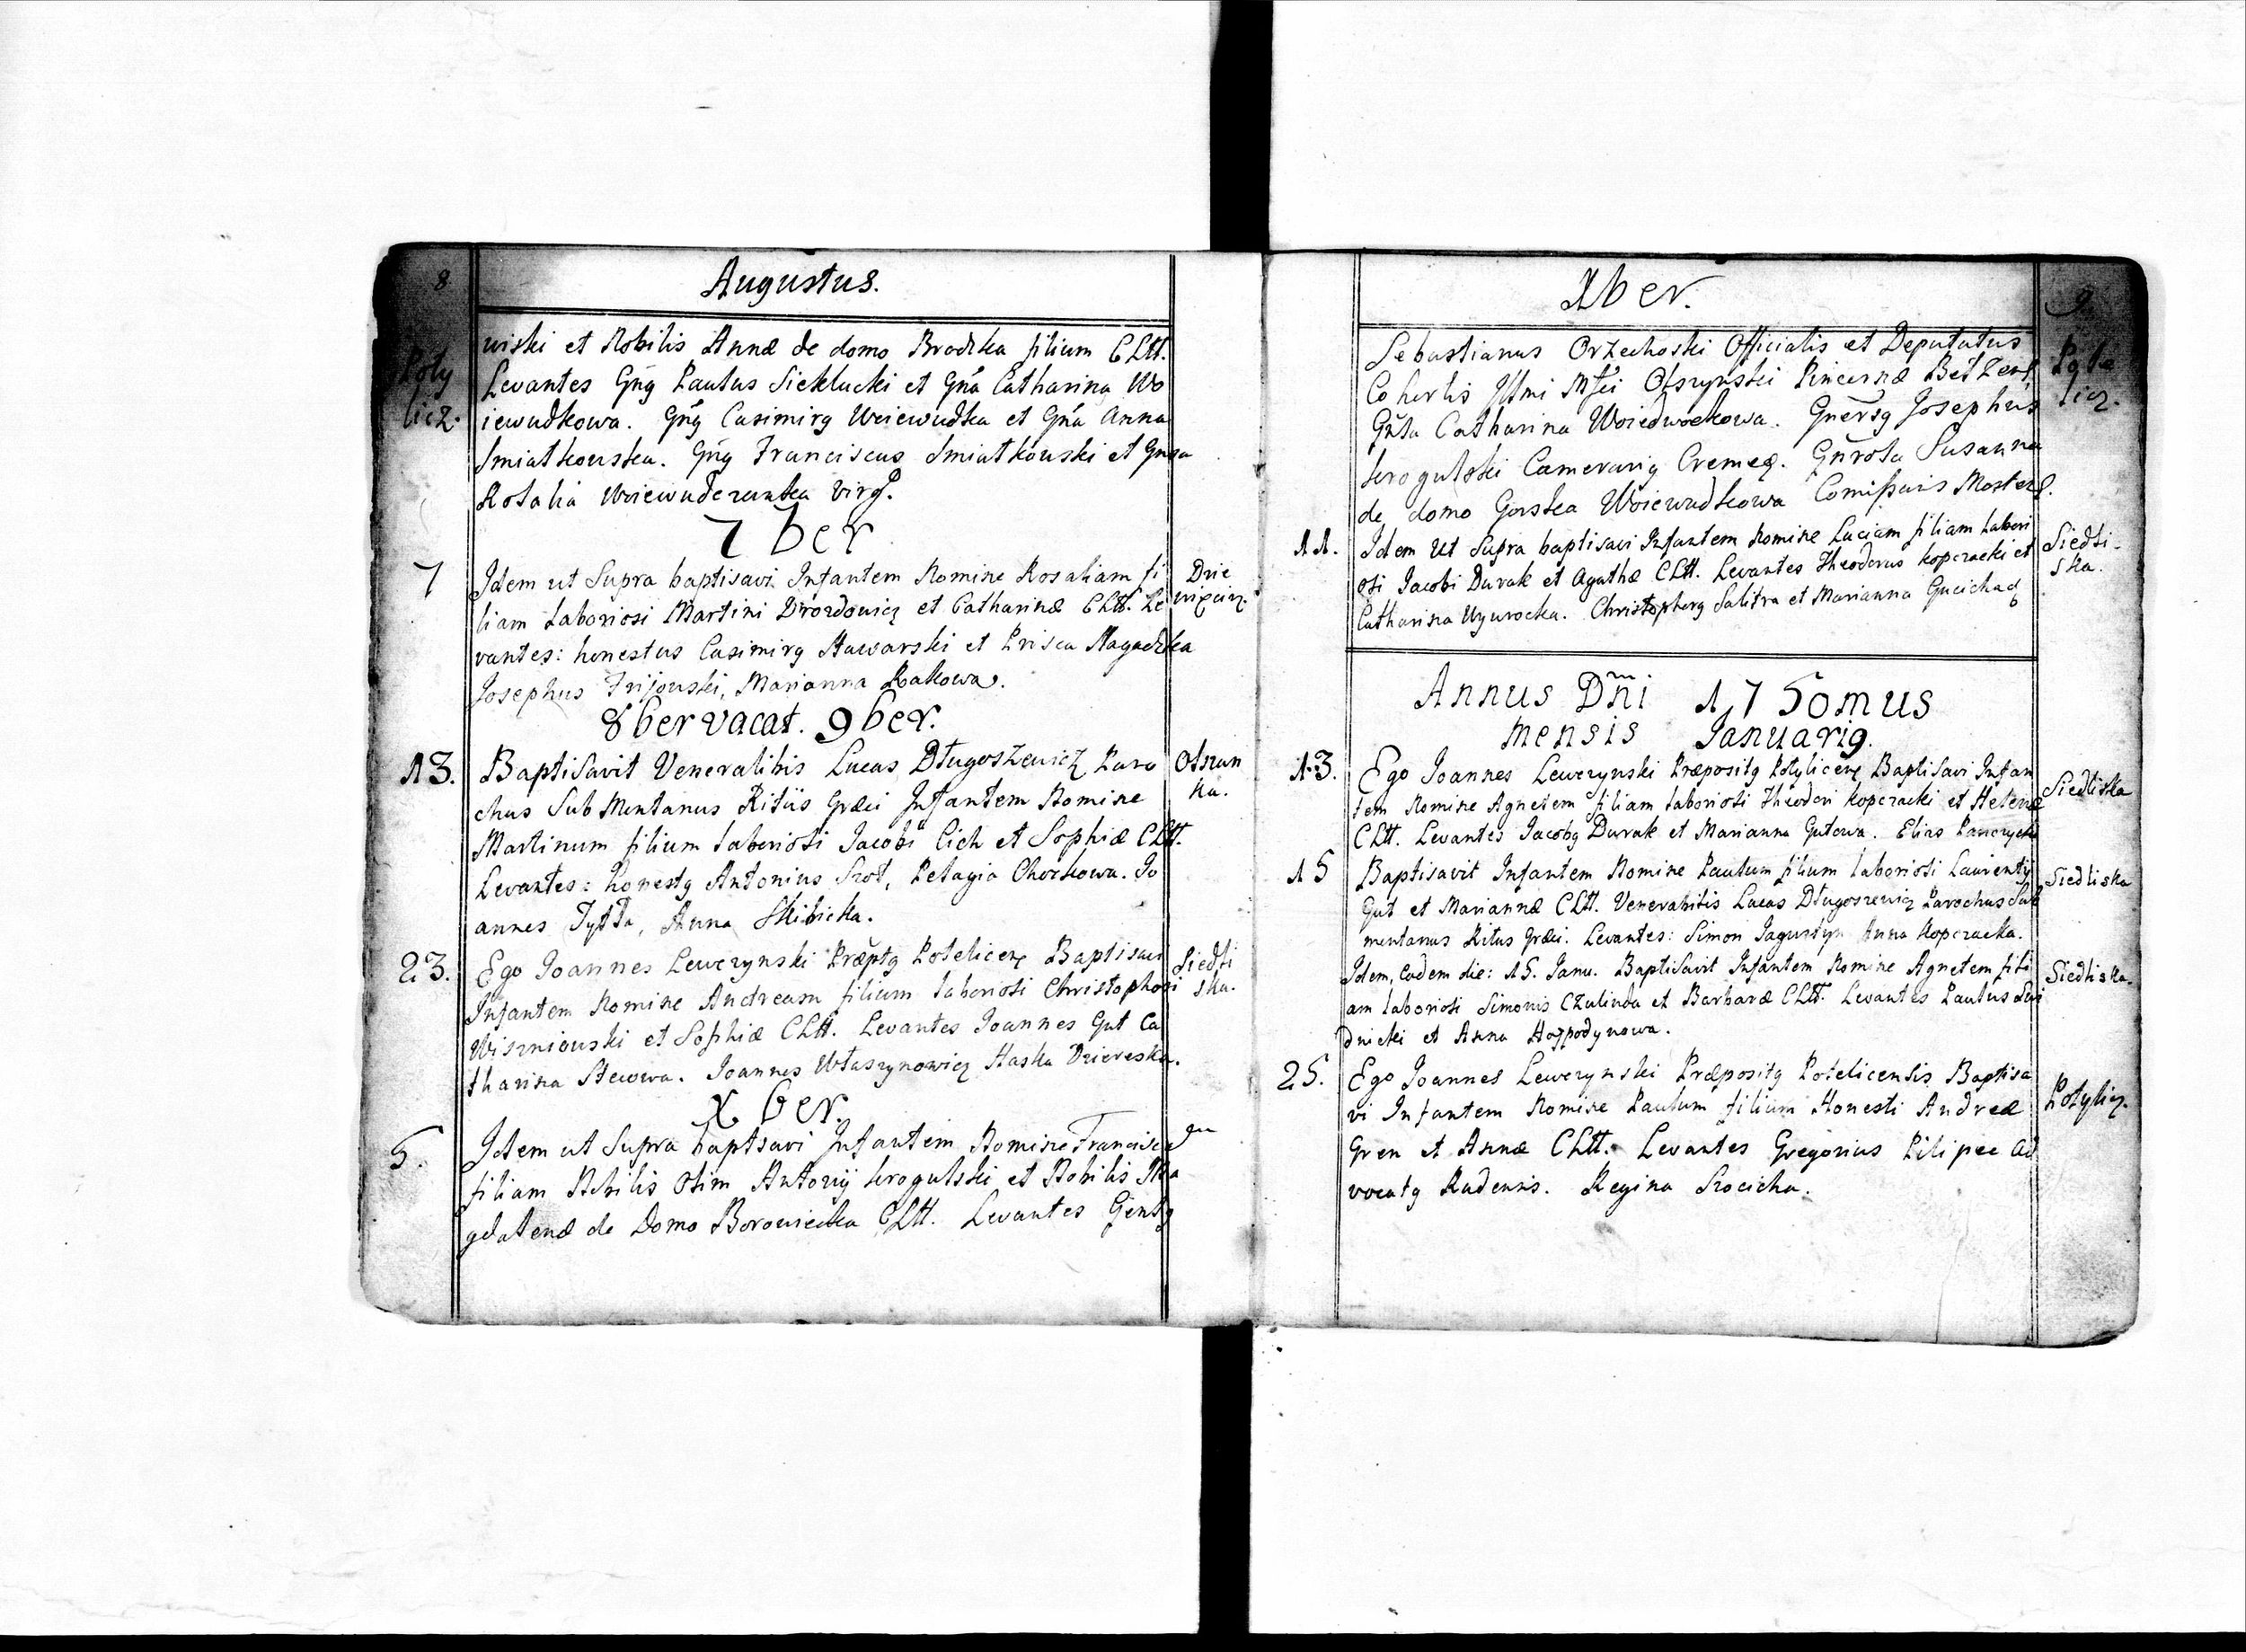 8
Augustus.
Poty
licz.
wiski et Nobilis Annæ de domo Brodzka filium CLtt.
Levantes Gńg Paulus Sieklucki et Gńa Catharina Wo
iewudkowa. Gńg Casimirg Woiewudka et Gńa Anna
Smiatkowska. Gńg Franciscus Smiatkowski et Gnsa
Rosalia Woiewudczanka Virg.
7 ber
7
Idem ut Supra baptisavi Infantem Nomine Rosaliam fi
liam Laboriosi Martini Drozdowicz et Catharinæ CLtt. Le
vantes: honestus Casimirg Hawarski et Prisca Nagadzka
Josephus Fryjouski, Marianna Rakowa.
Dzie
więcirz.
8ber vacat. 9ber.
13.
Baptisavit Veneralibis Lucas Długoszewicz Paro
chus Sub Montanus Ritûs Græci Infantem Nomine
Martinum filium Laboriosi Jacobi Cich et Sophiæ CLtt.
Levantes: honestg Antonius Szot, Pelagia Chorkowa. Jo
annes Tytła, Anna Skibicka.
Olszan
ka.
23.
Ego Joannes Lewczynski Præptg Poteliceņ Baptisavi
Infantem Nomine Andream filium Laboriosi Christophori
Wiszniouski et Sophiæ CLtt. Levantes Joannes Gut Ca
tharina Stecowa. Joannes Własznowicz Haska Dziereska.
Siedli
ska.
X ber.
5.
Idem ut Supra baptsavi Infantem Nomine Francisca
filiam Nobilis Osim Antonij Serogulski et Nobilis Ma
gdalenæ de Domo Borowiecka CLtt. Levantes Gensg
9
Xber.
Sebastianus Orzechoski Officialis et Deputatus
Cohortis Illmi Mfci Olszynski Pincernæ Bełzens,
Gńsa Catharina Woiedwodkowa. Gnersg Josephus
Serogulski Camerarig Cremeę. Gnrosa Susanna
de domo Gorska Woiewudkowa Comißaris Mosters.
Pote
licz.
11.
Idem Ut Supra baptisavi Infantem Nomine Luciam filiam Labori
osi Jacobi Durak et Agathæ CLtt. Levantes Theodorus Kopczacki et
Catharina Wywrocka. Christopherg Salitra et Marianna Gucicha
Siedli-
ska.
Annus Dñi 1750mus
Mensis Januarig.
13.
Ego Joannes Lewczynski Præpositg Potyliceņ Baptisavi Infan
tem Nomine Agnetem filiam Laboriosi Theodori Kopczacki et Helenæ
CLtt. Levantes Jacobg Durak et Marianna Gutowa. Elias Panczycha
Siedliska
15
Baptisavit Infantem Nomine Paulum filium Laboriosi Laurentij
Gut et Mariannæ CLtt. Venerabilis Lucas Długoszewicz Parochus Sub
montanus Ritus Græci. Levantes: Simon Jagustyn Anna Kopczacka.
Siedliska
Idem, Eadem die: 15. Janu. Baptisavit Infantem Nomine Agnetem fili
am Laboriosi Simonis Czulinda et Barbaræ CLtt. Levantes Paulus Swi
dnicki et Anna Hospodynowa.
Siedliska.
25.
Ego Joannes Lewczynski Præpositg Potelicensis Baptisa
vi Infantem Nomine Paulum filium Honesti Andreæ
Gren et Annæ CLtt. Levantes Gregorius Pilipec Ad
vocatg Rudensis. Regina Szocicha.
Potylicz.